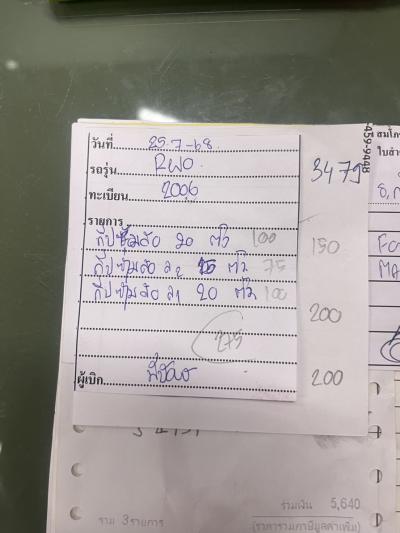 วันที่ 25-7-68
รถรุ่น
ทะเบียน 2006
3479
459-9448
สมโภ
ใบสำ
รายการ
กิ๊ปซุ้มล้อ 20 ตัว 100
150
กิ๊ปซุ้มล้อ ล2 15 ตัว 75
กิ๊ปซุ้มล้อ ล1 20 ตัว 100
200
275
ผู้เบิก
200
รวม 3 รายการ
รวมเงิน 5,640
(ราคารวมภาษีมูลค่าเพิ่ม)